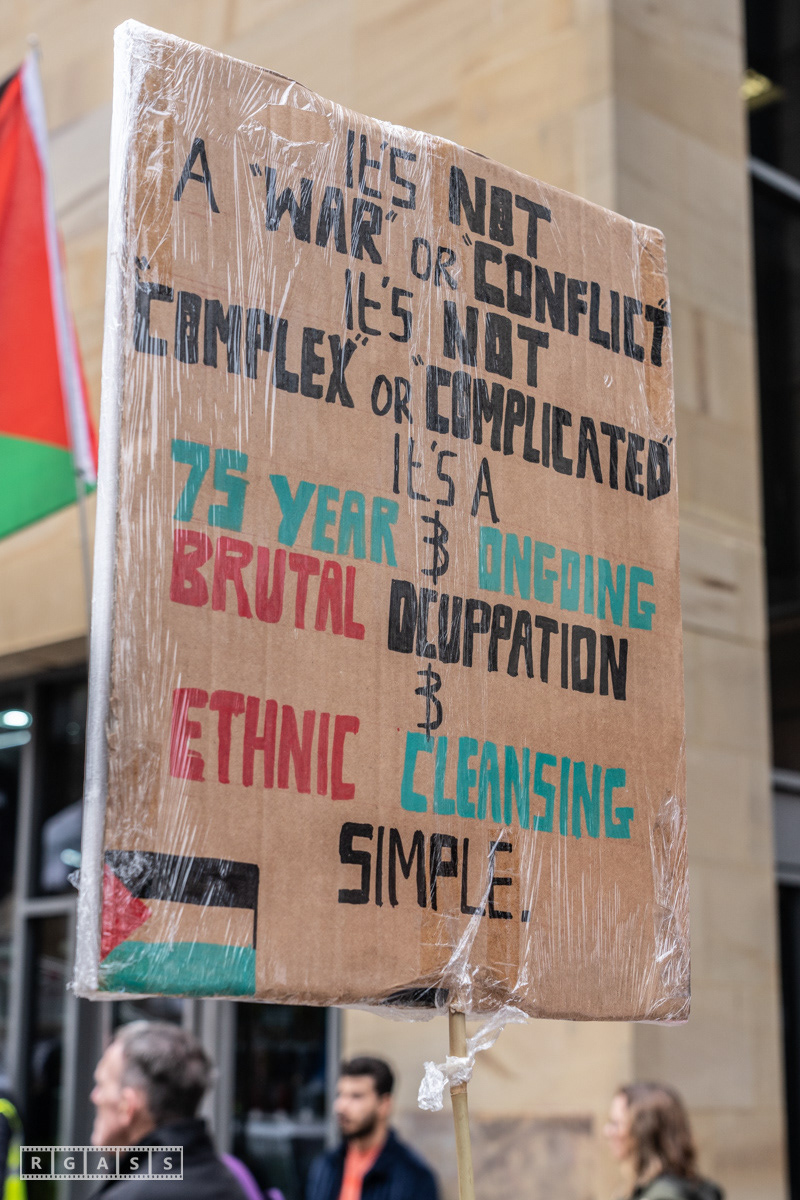 IT'S NOT
A "WAR" OR "CONFLICT"
IT'S NOT
"COMPLEX" OR "COMPLICATED"
IT'S A
75 YEAR & ONGOING
BRUTAL OCUPPATION
&
ETHNIC CLEANSING
SIMPLE.
RGASS